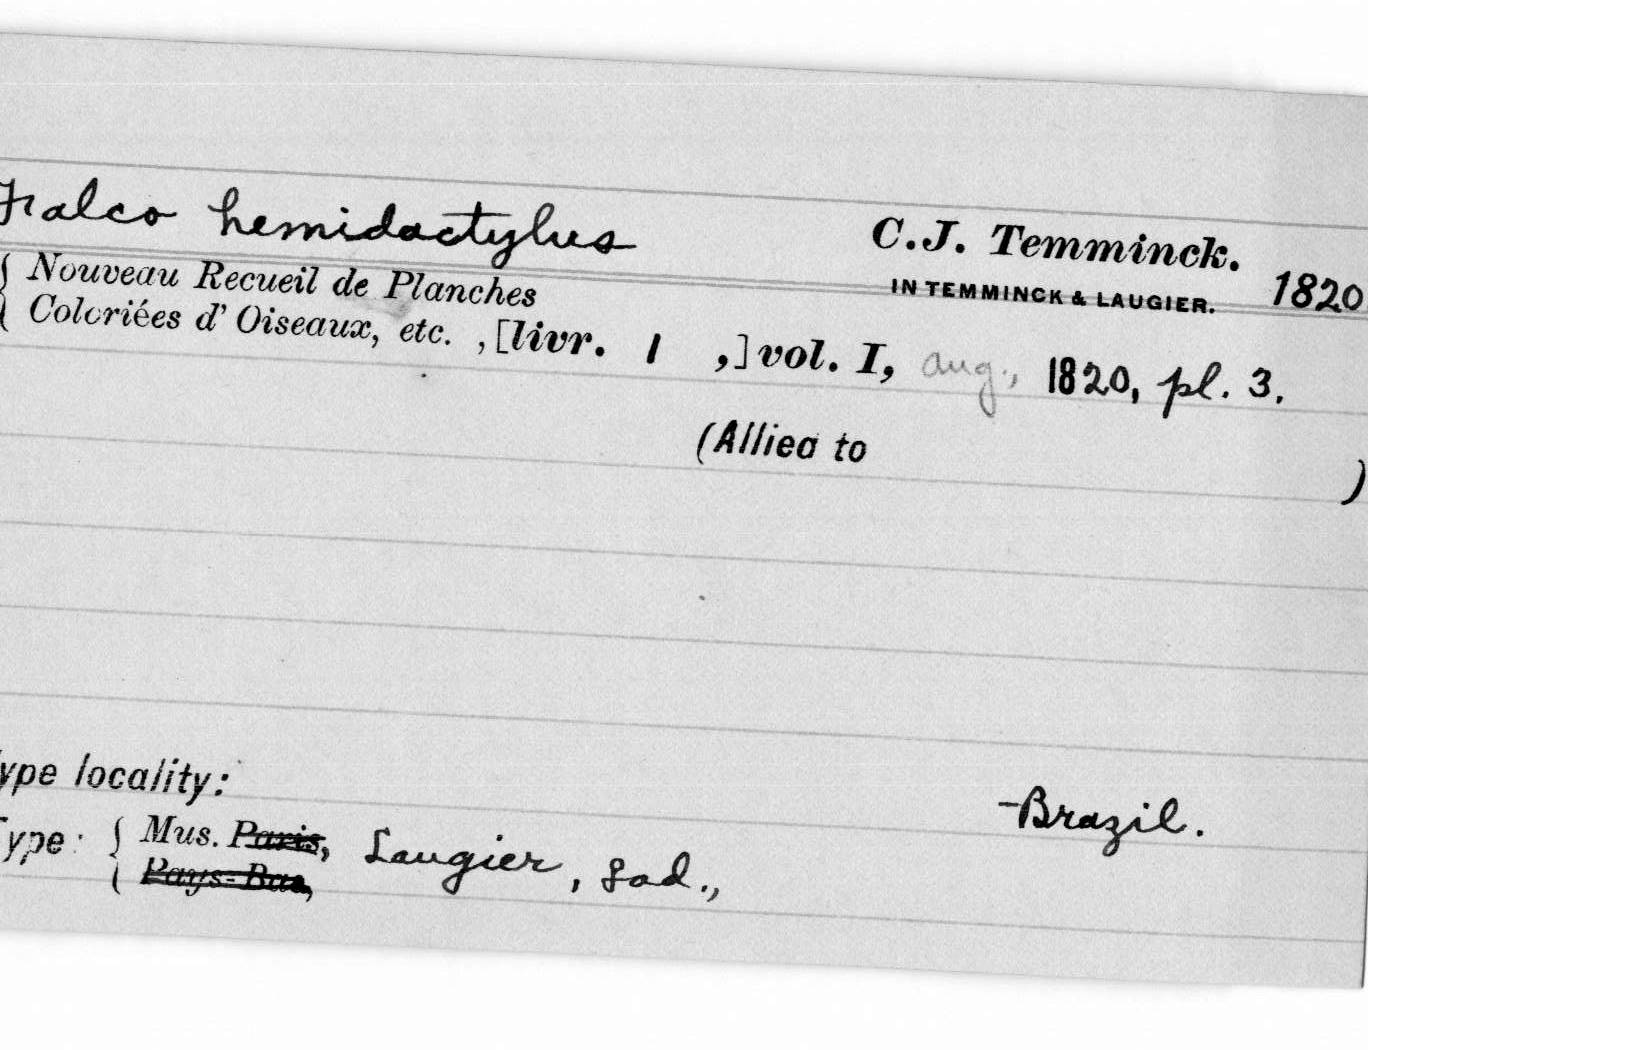 Falco hemidactylus
C.J. Temminck.
IN TEMMINCK & LAUGIER. 1820
Nouveau Recueil de Planches
Coloriées d' Oiseaux, etc. , [livr. 1 ,] vol. I, aug., 1820, pl. 3.
(Allied to )
ype locality: Brazil.
Type: Mus. Paris, Laugier, sad.,
Pays-Bas,